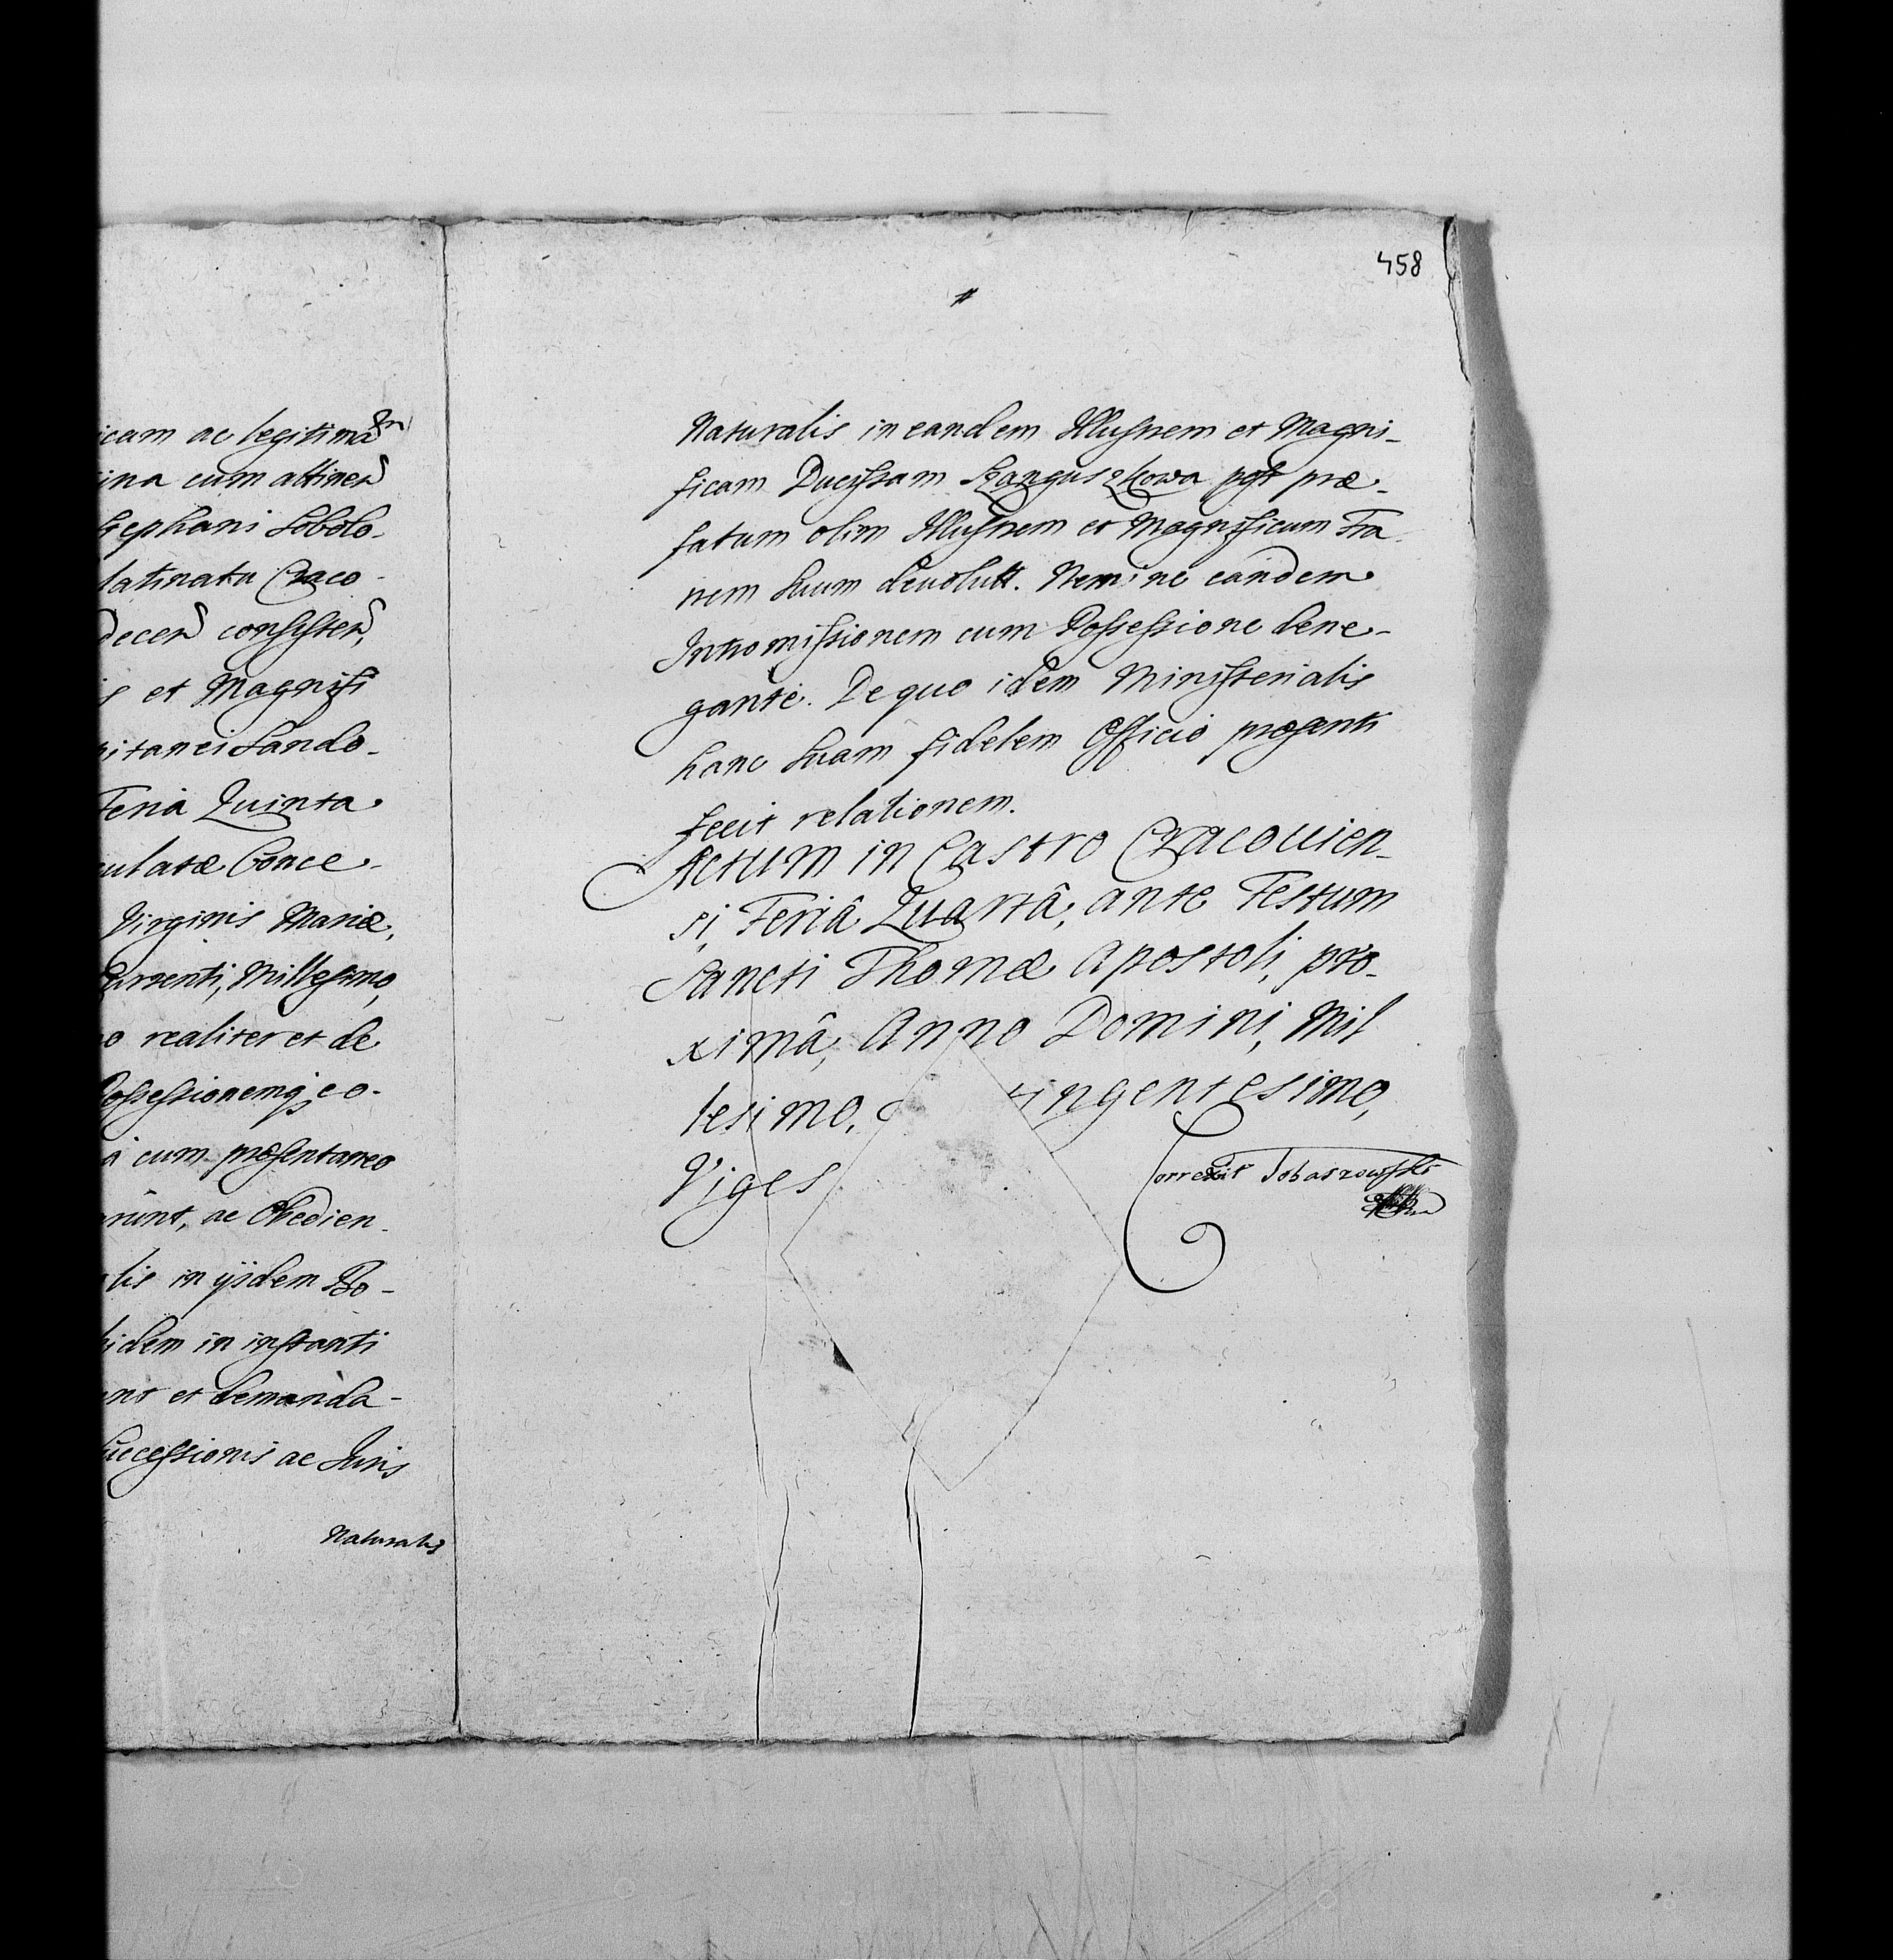 icam ac legitimam
ina cum attinen
Stephani Sobolo-
latinatu Craco-
decen consisten,
s et Magnifi
pitanei Sando-
Feria Quinta
ulatæ Conce-
Virginis Mariæ,
Currenti, Millesimo,
o realiter et de
Possessionemq eo-
à cum præsentaneo
runt, ac Obedien-
lis in ijsdem Bo-
bidem in instanti
ant et demanda-
Successionis ac Juris
Naturalis
458
Naturalis in eandem Illustrem et Magni-
ficam Ducissam Sanguszkowa post præ-
fatum olim Illustrem et Magnificum Fra-
nem Suum devolutt. Nemine eandem
Intromissionem cum Possessione dene-
gante. De quo idem Ministerialis
hanc Suam fidelem Officio præsenti
fecit relationem.
Actum in Castro Cracovien-
si, Feriâ Quartâ, ante Festum
Sancti Thomæ Apostoli, pro-
ximâ, Anno Domini, Mil
lesimo, tingentesimo,
Viges
Correxit